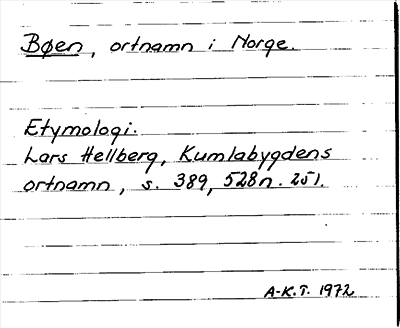 Bøen, ortnamn i Norge.
Etymologi.
Lars Hellberg, Kumlabygdens
ortnamn, s. 389, 528 n. 251.
A-K.T. 1972